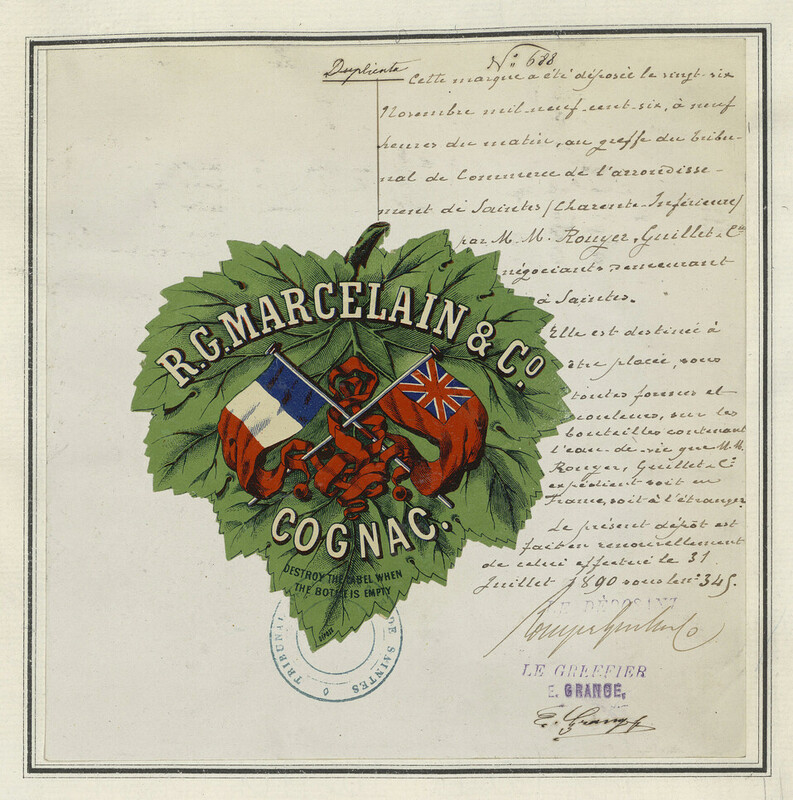 Duplicata
N° 688
Cette marque a été déposée le vingt-six
Novembre mil-neuf-cent-six, à neuf
heures du matin, au greffe du Tribu-
nal de Commerce de l'arrondisse-
ment de Saintes (Charente-Inférieure)
par M.M. Rouyer, Guillet & Cie
négociants demeurant
à Saintes.
Elle est destinée à
être placée, sous
toutes formes et
couleurs, sur les
bouteilles contenant
l'eau-de-vie que M.M.
Rouyer, Guillet & Cie
expédient soit en
France, soit à l'étranger
Le présent dépôt est
fait en renouvellement
de celui effectué le 31
Juillet 1890 sous le n° 345.
R.G. MARCELAIN & Co
COGNAC.
DESTROY THE LABEL WHEN
THE BOTTLE IS EMPTY
DÉPOSÉ
TRIBUNAL
DE SAINTES
LE DÉPOSANT
Rouyer Guillet & Co
LE GREFFIER
E. GRANGE,
E. Grange